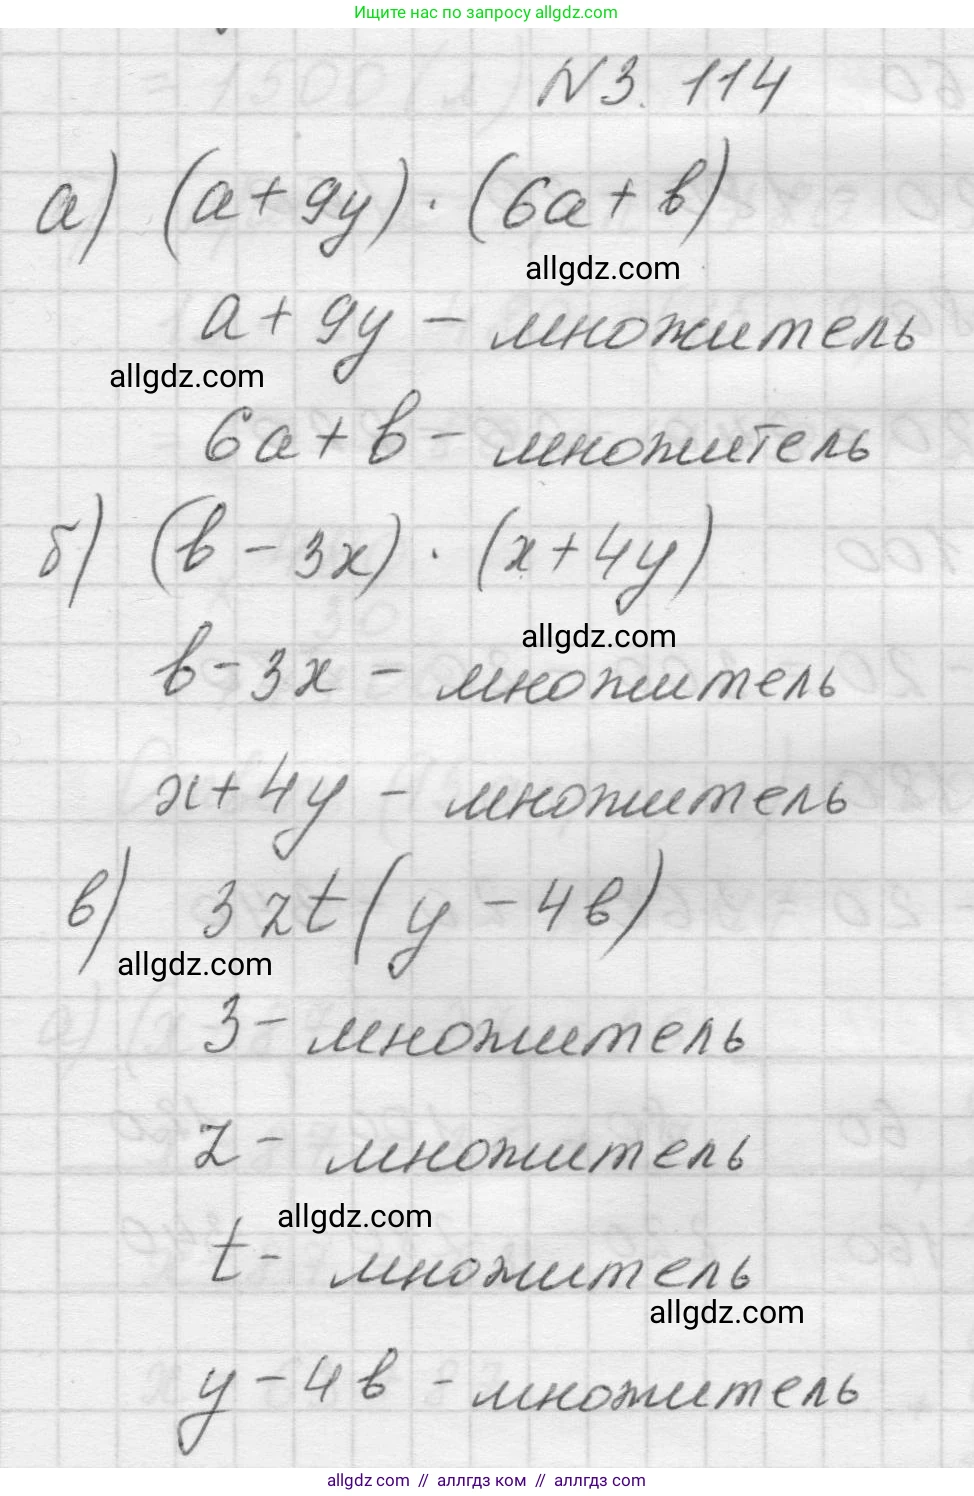 Ищите нас по запросу allgdz.com
N 3. 114
а) (a + 9y) · (6a + b)
allgdz.com
a + 9y – множитель
allgdz.com
6a + b – множитель
б) (b – 3x) · (x + 4y)
allgdz.com
b – 3x – множитель
x + 4y – множитель
в) 3zt(y – 4b)
allgdz.com
3 – множитель
z – множитель
allgdz.com
t – множитель
allgdz.com
y – 4b – множитель
allgdz.com // аллгдз ком // аллгдз.com